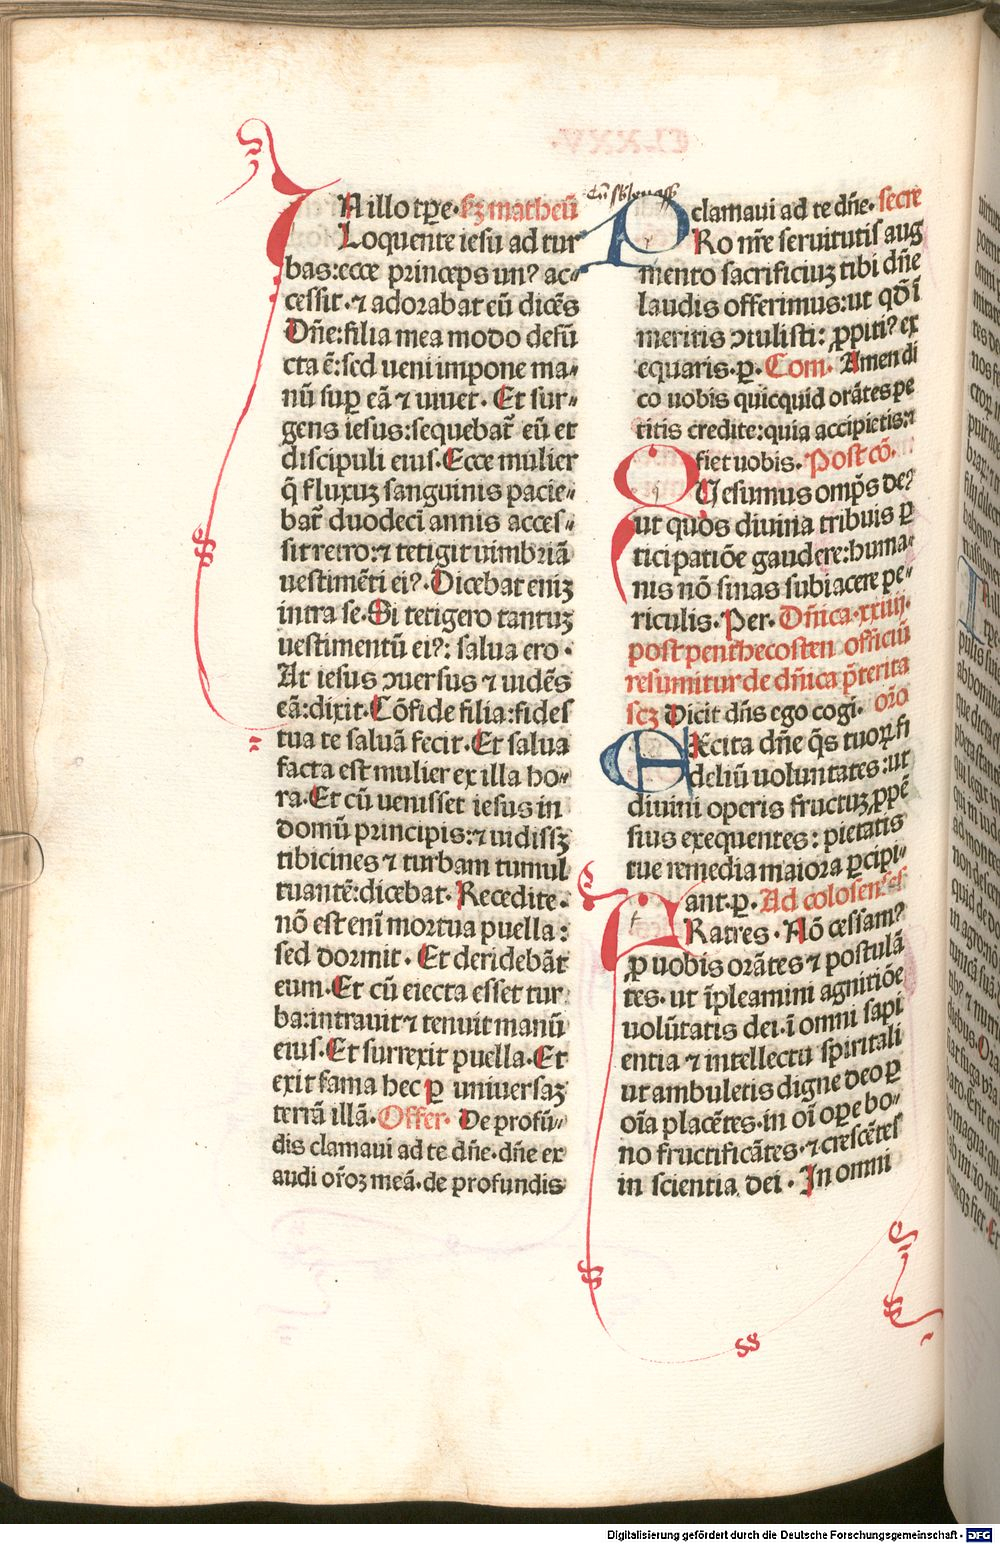 IN illo tp̄e. ẜꝫ matheū
Loquente iesu ad tur
bas: ecce princeps unꝰ ac⸗
cessit. ⁊ adorabat eū dicēs
Dn̄e: filia mea modo defū
cta ē: sed ueni impone ma⸗
nū sup̱ eā ⁊ uiuet. Et sur⸗
gens iesus: sequebat᷑ eū et
discipuli eius. Ecce mulier
q̄ fluxuꝫ sanguinis pacie⸗
bat᷑ duodeci annis acces⸗
sit retro: ⁊ tetigit uimbriā
uestimēti eiꝰ. Dicebat eniꝫ
intra se. Si tetigero tantuꝫ
uestimentū eiꝰ: salua ero.
At iesus ↄuersus ⁊ uidēs
eā: dixit. Cōfide filia: fides
tua te saluā fecit. Et salua
facta est mulier ex illa ho⸗
ra. Et cū uenisset iesus in
domū principis: ⁊ uidissꝫ
tibicines ⁊ turbam tumul
tuantē: dicebat. Recedite.
nō est enī mortua puella:
sed dormit. Et deridebāt
eum. Et cū eiecta esset tur
ba: intrauit ⁊ tenuit manū
eius. Et surrexit puella. Et
exit fama hec ꝑ uniuersaꝫ
terrā illā. Offer. De profū⸗
dis clamaui ad te dn̄e. dn̄e ex
audi or̄oꝫ meā. de profundis
clamaui ad te dn̄e. secre
PRo nr̄e seruitutis aug
mento sacrificiuꝫ tibi dn̄e
laudis offerimus: ut qd̄ ī
meritis ↄtulisti: ꝓpitiꝰ ex
equaris. ꝑ. Com. Amen di
co uobis quicquid orātes pe
titis credite: quia accipietis: ⁊
fiet uobis. Post cō.
QUesumus omp̄s deꝰ
ut quos diuina tribuis ꝑ
ticipatiōe gaudere: huma⸗
nis nō sinas subiacere pe⸗
riculis. Per. Dn̄ica. xxiiij.
post penthecosten officiū
resumitur de dn̄ica p̄terita
scꝫ Dicit dn̄s ego cogi. or̄o
EXcita dn̄e q̄s tuoꝝ fi
deliū uoluntates: ut
diuini operis fructuꝫ ꝓpē
sius exequentes: pietatis
tue remedia maiora ꝑcipi⸗
ant. ꝑ. Ad colosenses
FRatres. Nō cessamꝰ
ꝓ uobis orātes ⁊ postulā
tes. ut īpleamini agnitiōe
uolūtatis dei. ī omni sapi
entia ⁊ intellectu spiritali
ut ambuletis digne deo ꝑ
oīa placētes. in oī oꝑe bo⸗
no fructificātes. ⁊ crescētes
in scientia dei. In omni
Digitalisierung gefördert durch die Deutsche Forschungsgemeinschaft - DFG